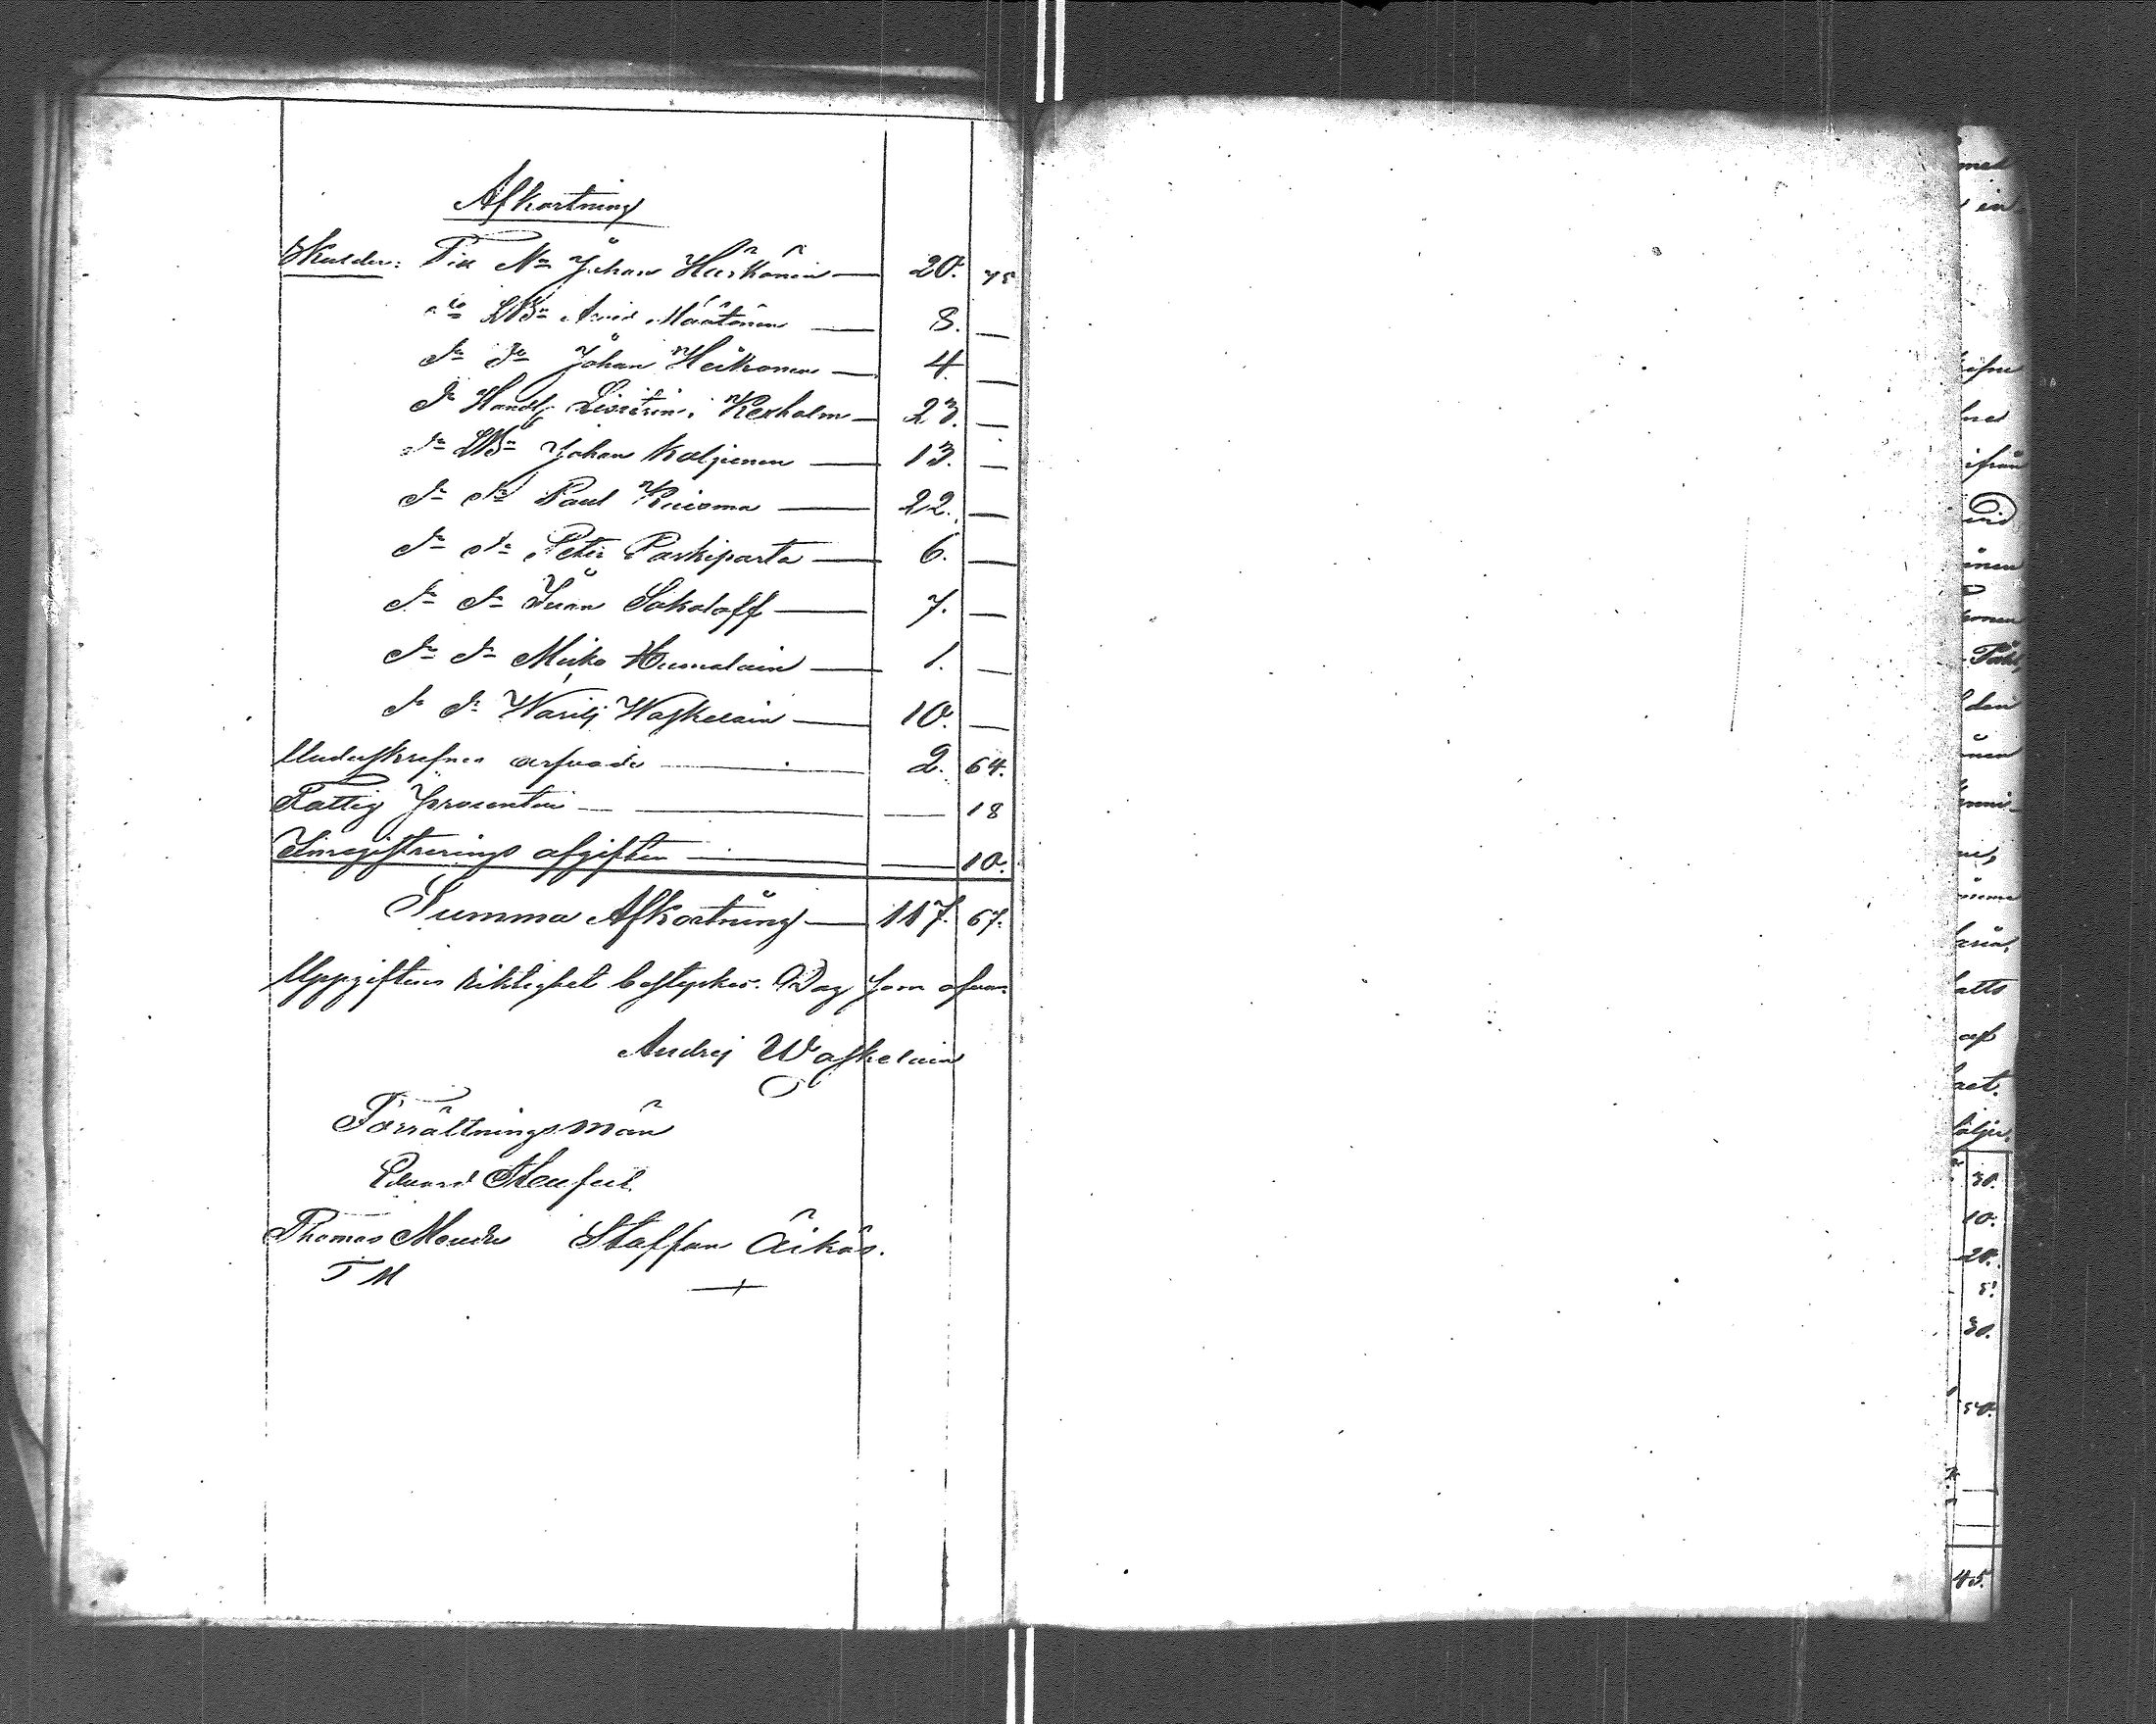 Afkortning
Skulder: Till Johan Härkönen — 20. 75
do LBn Maatonen — 8. —
do do Johan Heikonen — 4. —
do Handl. i Kexholm — 23. —
do LBn Johan Koljonen — 13. —
do do Paul Kuisma — 22. —
do do Peter Parkiparta — 6. —
do do Iwan Sokoloff — 7. —
do do Miiko Humalain — 1. —
do do Wasilj Waskelain — 10. —
Underskrefnes arfvode — 2. 64.
Fattig procenten — — 18
Inregistrerings afgiften — — 10.
Summa Afkortning — 117. 67.
Uppgiftens riktighet bestyrker. Dag som ofvan.
Andrej Waskelain
Förrättningsmän
Eduard Neufeld.
Thomas Staffan Äikäs.
T M
med
ifrån
nen
den
nen
atts
af
30.
10.
20.
5.
30.
50.
45.